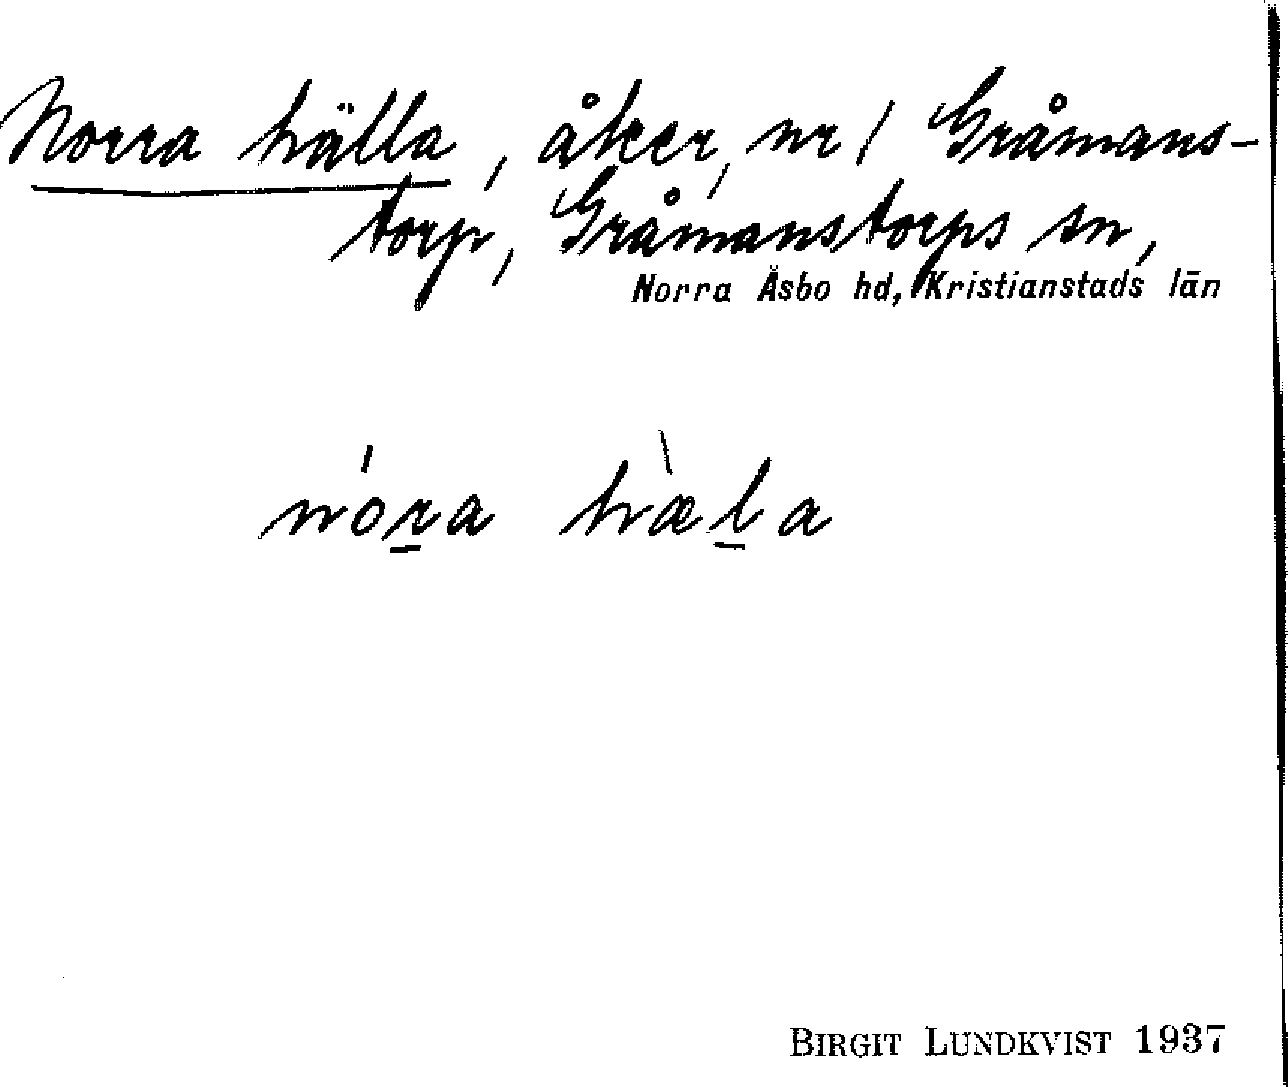 Norra hälla, åker, nr 1 Gråmans-
torp, Gråmanstorps sn,
Norra Åsbo hd, Kristianstads län
nór̠a hæ̀l̠a
BIRGIT LUNDKVIST 1937